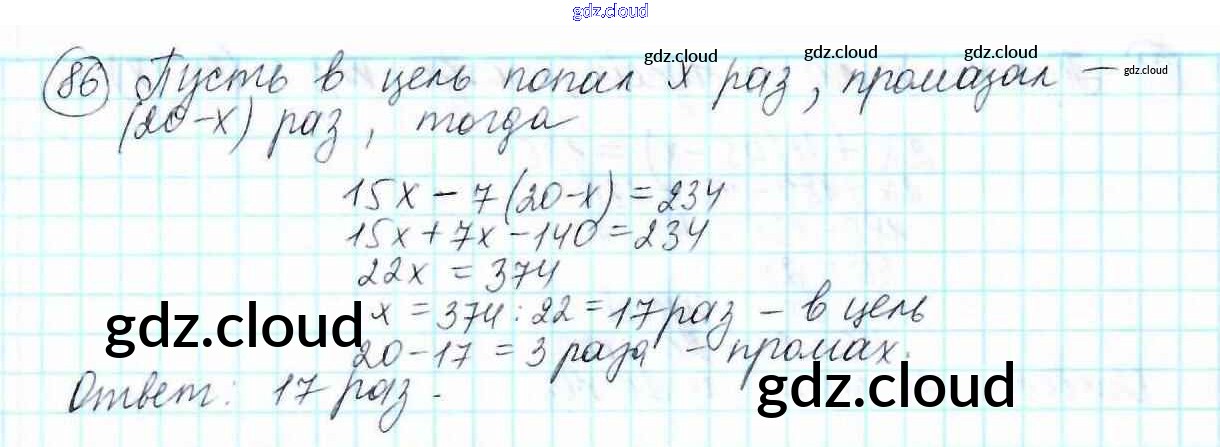 gdz.cloud
gdz.cloud gdz.cloud gdz.cloud gdz.cloud
86 Пусть в цель попал x раз, промазал —
(20-x) раз, тогда
15x - 7(20-x) = 234
15x + 7x - 140 = 234
22x = 374
x = 374 : 22 = 17 раз - в цель
gdz.cloud
20 - 17 = 3 раза - промах.
gdz.cloud
Ответ: 17 раз.